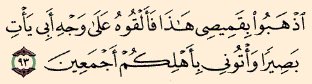 ٱذۡهَبُواْ بِقَمِيصِي هَٰذَا فَأَلۡقُوهُ عَلَىٰ وَجۡهِ أَبِي يَأۡتِ
بَصِيرٗا وَأۡتُونِي بِأَهۡلِكُمۡ أَجۡمَعِينَ ٩٣